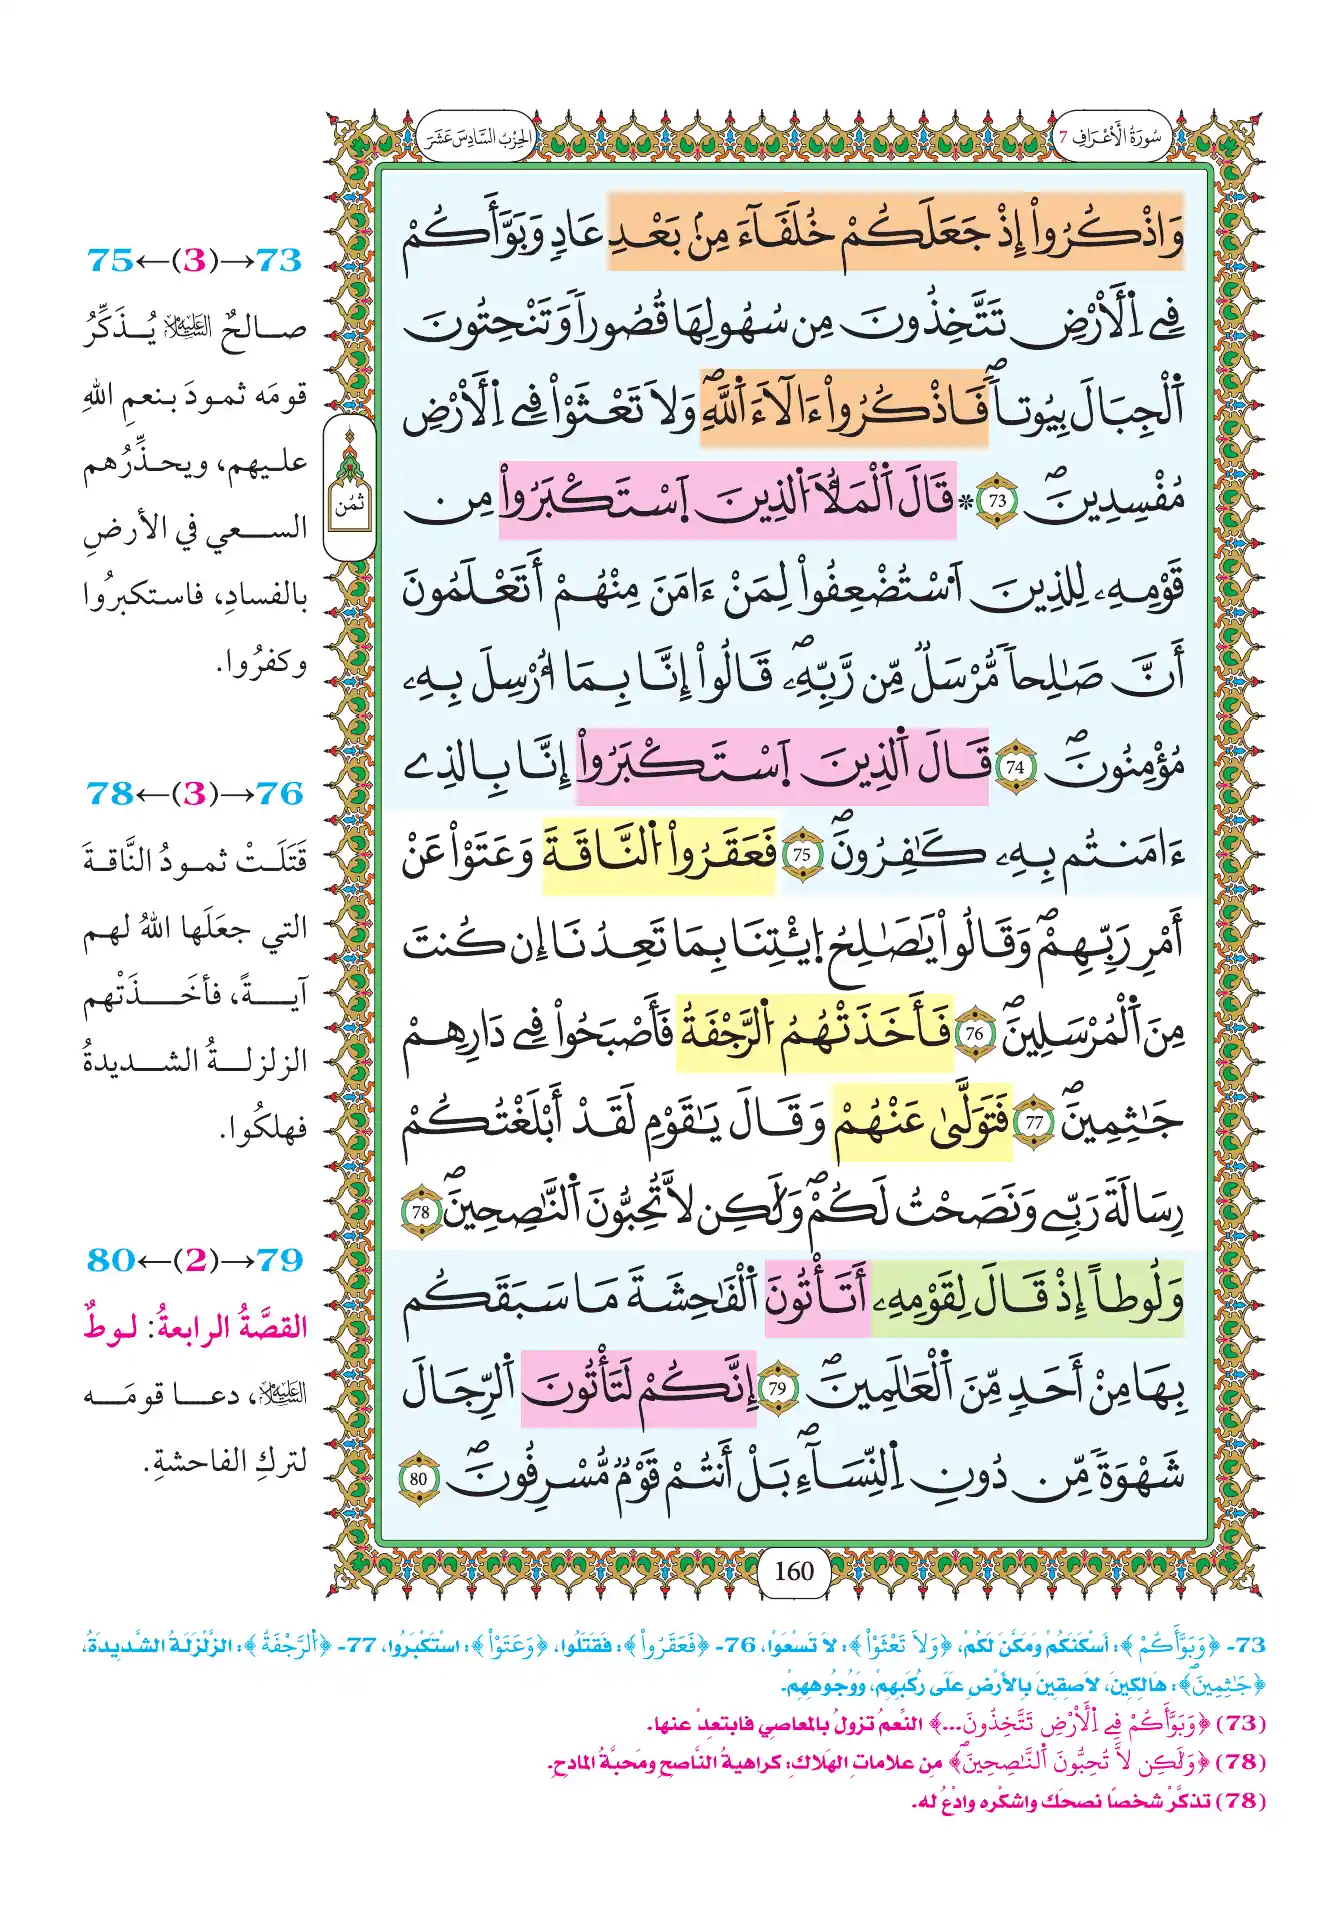 سُورَةُ الْأَعْرَافِ 7
الحِزْبُ السَّادِسَ عَشَرَ
وَاذْكُرُواْ إِذْ جَعَلَكُمْ خُلَفَآءَ مِنۢ بَعْدِ عَادٍ وَبَوَّأَكُمْ
فِے اِ۬لَارْضِ تَتَّخِذُونَ مِن سُهُولِهَا قُصُوراً وَتَنْحِتُونَ
اَ۬لْجِبَالَ بِيُوتاًۖ فَاذْكُرُوٓاْ ءَالَآءَ اَ۬للَّهِۖ وَلَا تَعْثَوْاْ فِے اِ۬لَارْضِ
مُفْسِدِينَۖ 73 * قَالَ اَ۬لْمَلَأُ اُ۬لذِينَ اَ۪سْتَكْبَرُواْ مِن
قَوْمِهِۦ لِلذِينَ اَ۟سْتُضْعِفُواْ لِمَنْ ءَامَنَ مِنْهُمُۥٓ أَتَعْلَمُونَ
أَنَّ صَٰلِحاً مُّرْسَلٌ مِّن رَّبِّهِۦۖ قَالُوٓاْ إِنَّا بِمَآ أُرْسِلَ بِهِۦ
مُؤْمِنُونَۖ 74 قَالَ اَ۬لذِينَ اَ۪سْتَكْبَرُوٓاْ إِنَّا بِالذِےٓ
ءَامَنتُم بِهِۦ كَٰفِرُونَۖ 75 فَعَقَرُواْ اُ۬لنَّاقَةَ وَعَتَوْاْ عَنَ
اَمْرِ رَبِّهِمْۖ وَقَالُواْ يَٰصَٰلِحُ اُ۪ئْتِنَا بِمَا تَعِدُنَآ إِن كُنتَ
مِنَ اَ۬لْمُرْسَلِينَۖ 76 فَأَخَذَتْهُمُ اُ۬لرَّجْفَةُ فَأَصْبَحُواْ فِے دَارِهِمْ
جَٰثِمِينَۖ 77 فَتَوَلَّىٰ عَنْهُمْ وَقَالَ يَٰقَوْمِ لَقَدَ اَبْلَغْتُكُمْ
رِسَالَةَ رَبِّے وَنَصَحْتُ لَكُمْۖ وَلَٰكِن لَّا تُحِبُّونَ اَ۬لنَّٰصِحِينَۖ 78
وَلُوطاً إِذْ قَالَ لِقَوْمِهِۦٓ أَتَأْتُونَ اَ۬لْفَٰحِشَةَ مَا سَبَقَكُم
بِهَا مِنَ اَحَدٍ مِّنَ اَ۬لْعَٰلَمِينَۖ 79 إِنَّكُمْ لَتَأْتُونَ اَ۬لرِّجَالَ
شَهْوَةً مِّن دُونِ اِ۬لنِّسَآءِۖ بَلَ اَنتُمْ قَوْمٌ مُّسْرِفُونَۖ 80
ثُمُن
75←(3)→73
صـالحٌ عليه السلام يُـذَكِّرُ
قومَه ثمودَ بنعمِ اللهِ
عليهم، ويحذِّرُهم
السعي في الأرضِ
بالفسادِ، فاستكبرُوا
وكفرُوا.
78←(3)→76
قَتَلَتْ ثمودُ النَّاقةَ
التي جعلَها اللهُ لهم
آيةً، فأخَذَتْهم
الزلزلةُ الشديدةُ
فهلكُوا.
80←(2)→79
القصَّةُ الرابعةُ: لوطٌ
عليه السلام، دعا قومَه
لتركِ الفاحشةِ.
160
73- ﴿وَبَوَّأَكُمْ﴾: أَسْكَنَكُمْ وَمَكَّنَ لَكُمْ، ﴿وَلَا تَعْثَوْاْ﴾: لَا تَسْعَوْا، 76- ﴿فَعَقَرُواْ﴾: فَقَتَلُوا، ﴿وَعَتَوْاْ﴾: اسْتَكْبَرُوا، 77- ﴿اُ۬لرَّجْفَةُ﴾: الزَّلْزَلَةُ الشَّدِيدَةُ،
﴿جَٰثِمِينَۖ﴾: هَالِكِينَ، لَاصِقِينَ بِالأَرْضِ عَلَى رُكَبِهِمْ، وَوُجُوهِهِمْ.
(73) ﴿وَبَوَّأَكُمْ فِے اِ۬لَارْضِ تَتَّخِذُونَ...﴾ النِّعمُ تزولُ بالمعاصِي فابتعِدْ عنها.
(78) ﴿وَلَٰكِن لَّا تُحِبُّونَ اَ۬لنَّٰصِحِينَۖ﴾ من علاماتِ الهَلاكِ: كراهيةُ الناصحِ ومَحبَّةُ المادحِ.
(78) تذكَّرْ شخصًا نصحَك واشكُره وادْعُ له.